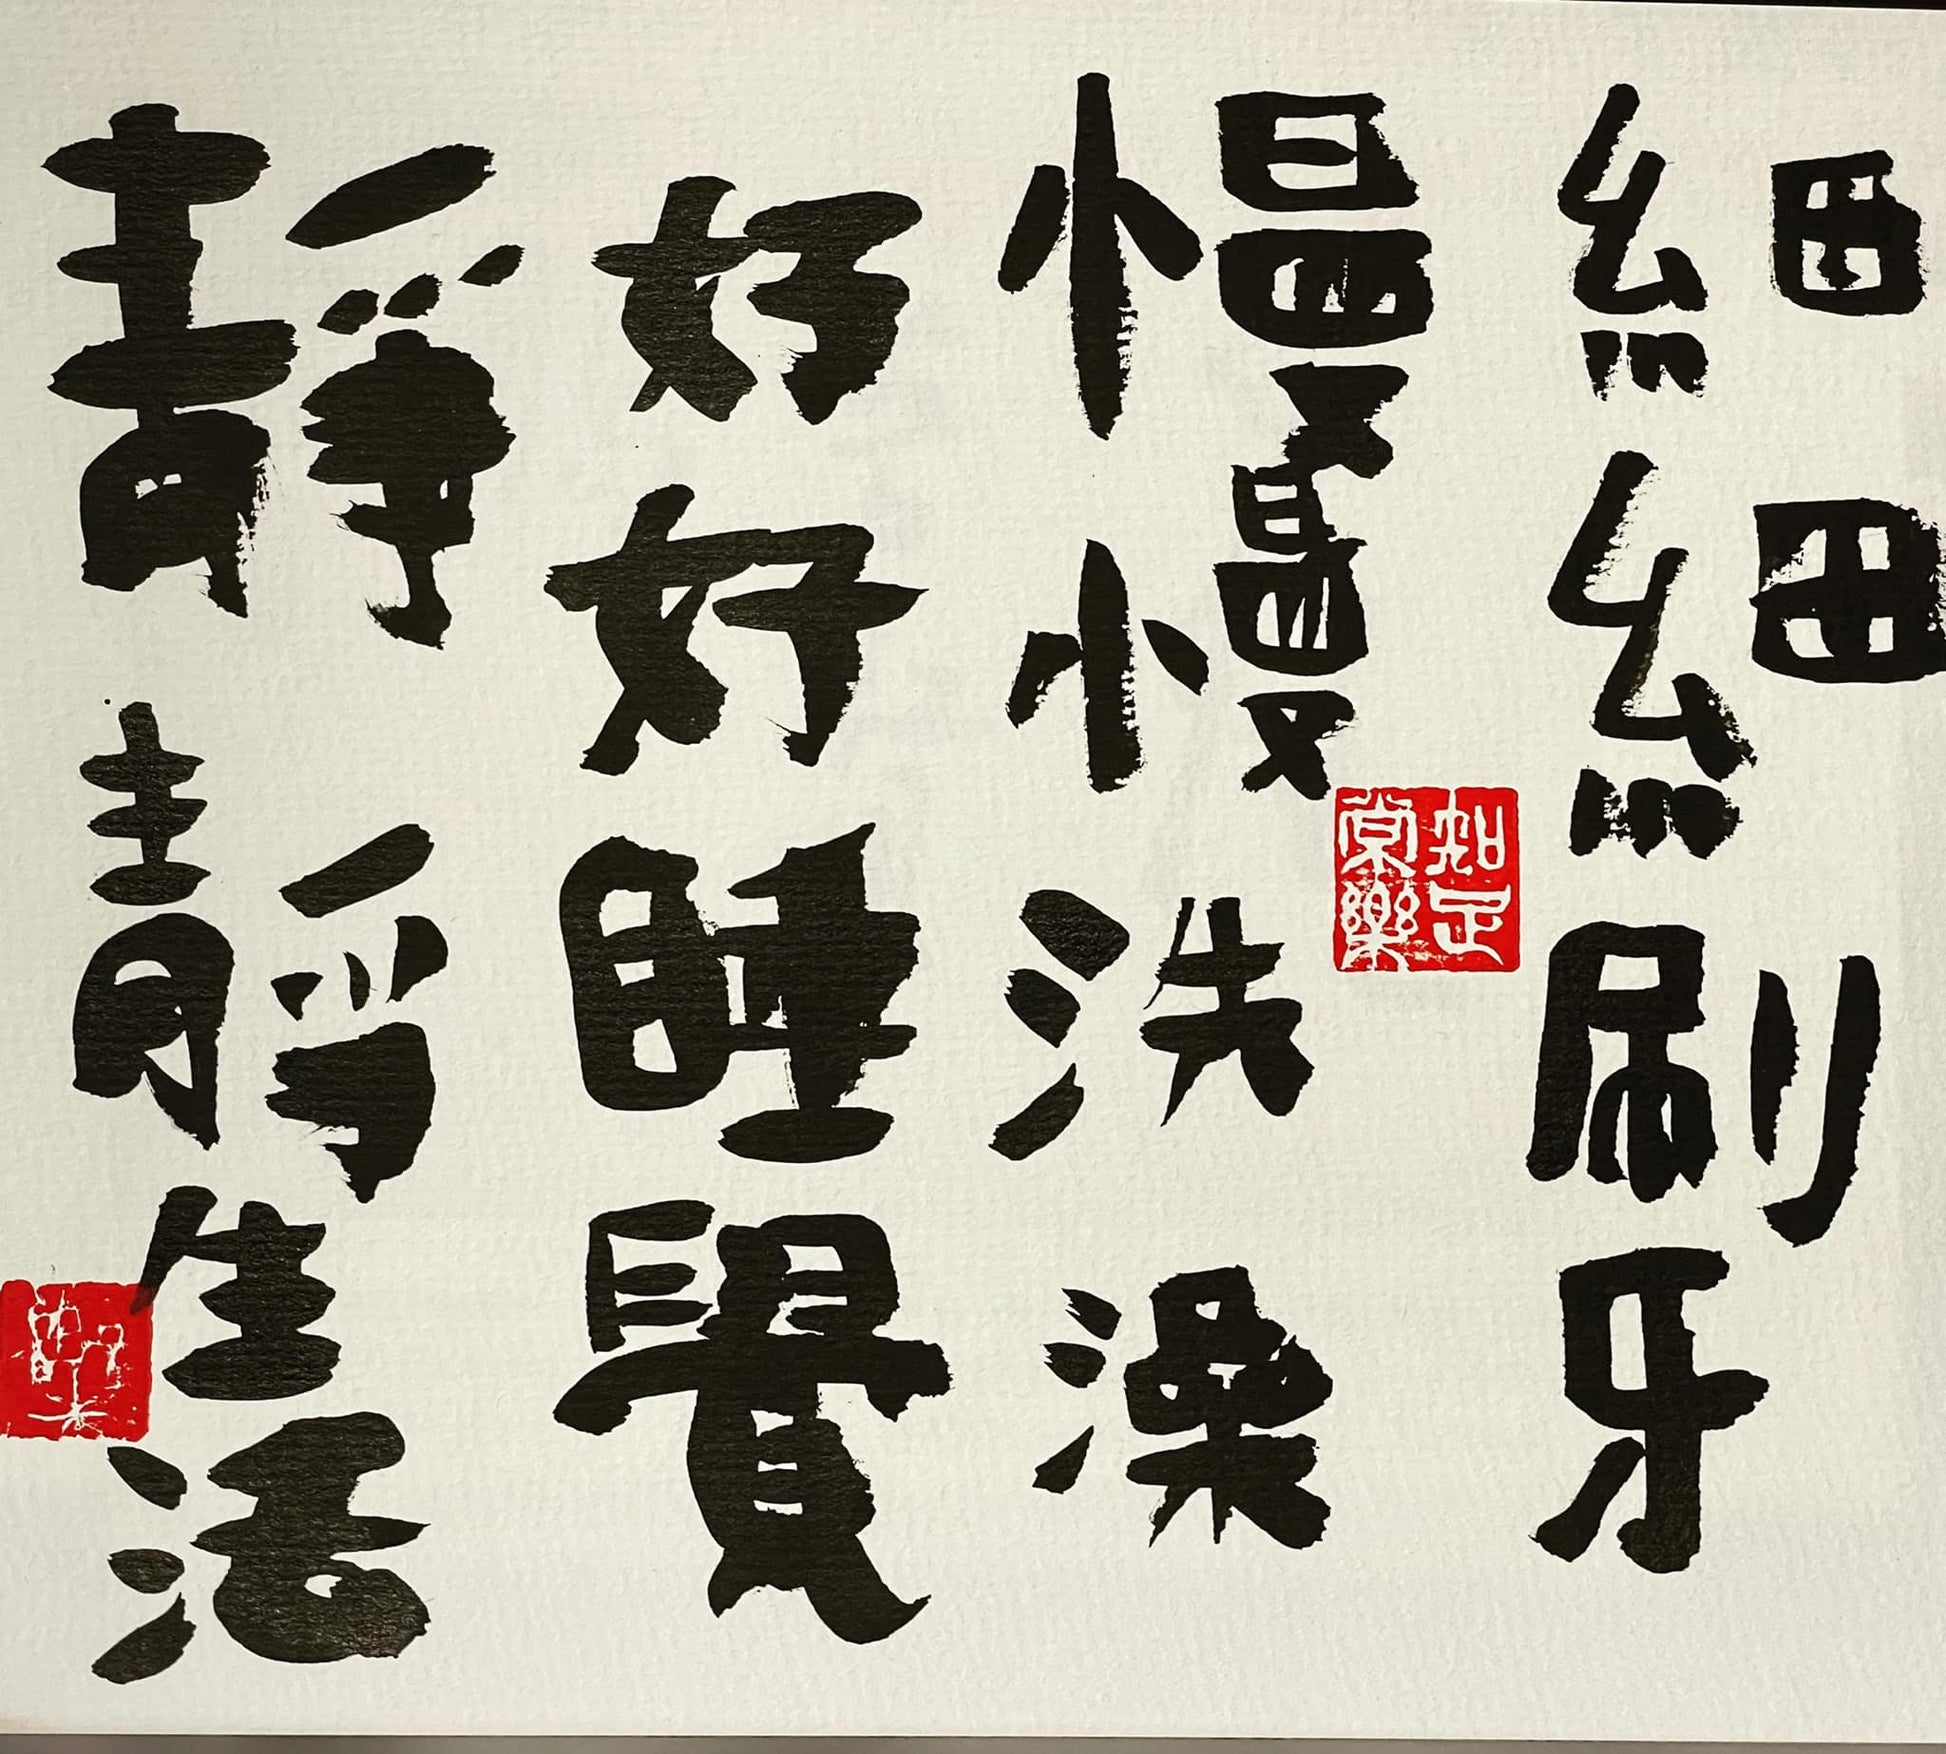 細細刷牙
慢慢洗澡
好好睡覺
靜靜生活
知足
常樂